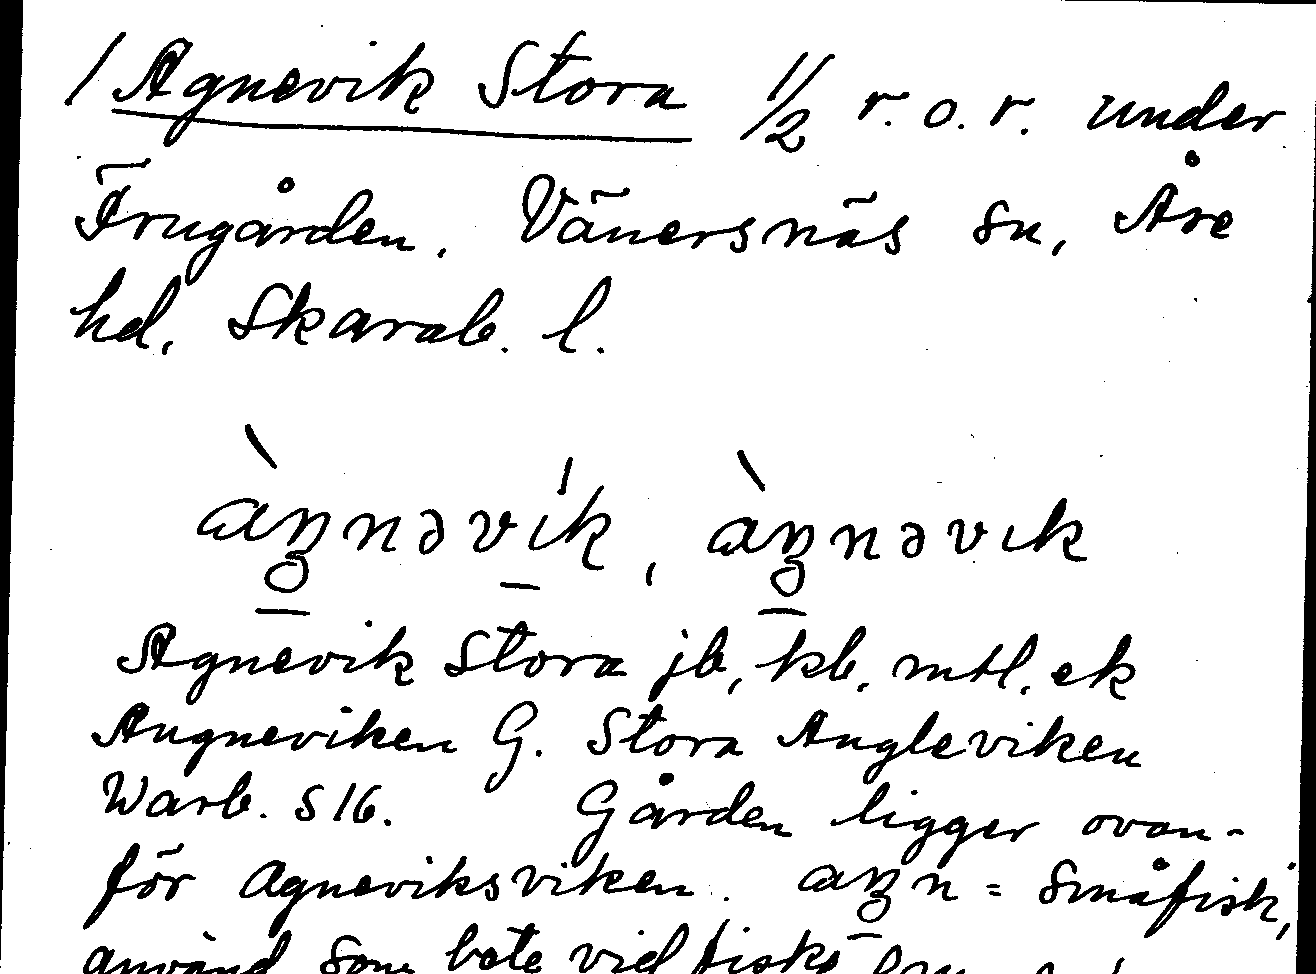 1 Agnevik Stora 1/2 r. o. r. under
Frugården. Vänersnäs sn, Åse
hd, Skarab. l.
àŋnəvík, àŋnəvık
Agnevik Stora jb, kb, mtl. ek
Augneviken G. Stora Angleviken
Warb. S 16. Gården ligger ovan-
för Agneviksviken. aŋn = Småfisk,
använd som bete vid fiske